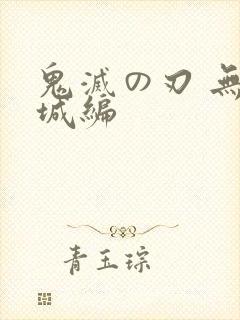 鬼滅の刃 無
城編
青玉琮